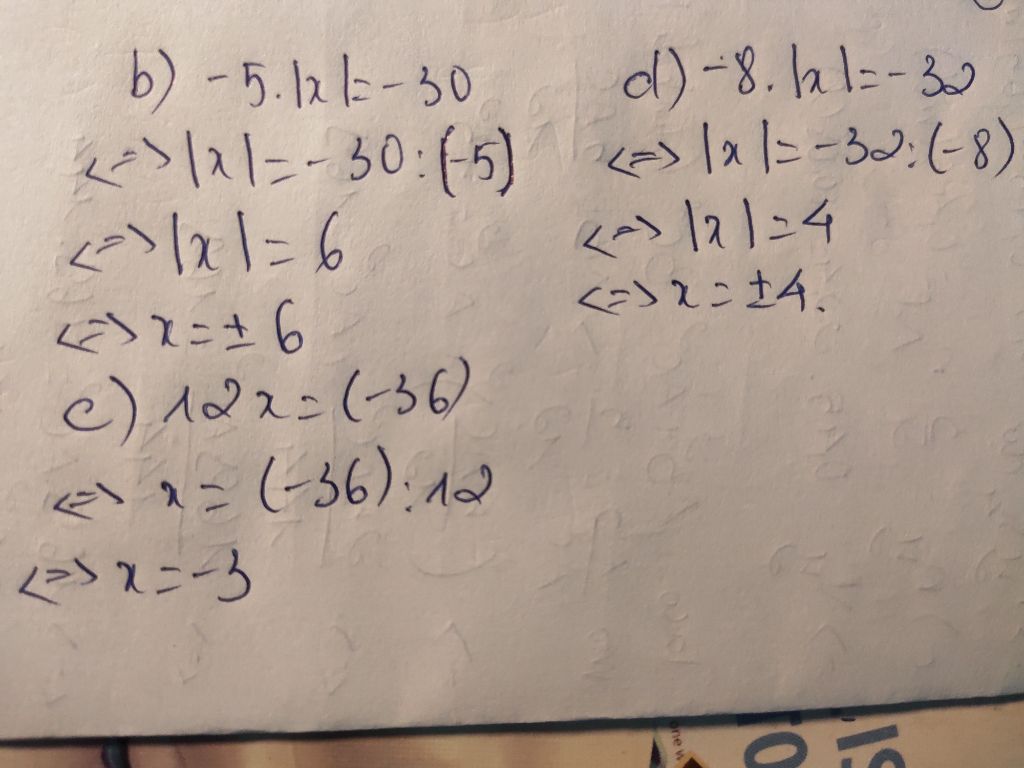 b) -5.|x|= -30
<=> |x|= -30:(-5)
<=> |x|= 6
<=> x = ± 6
c) 12x = (-36)
<=> x = (-36):12
<=> x = -3
d) -8.|x|= -32
<=> |x|= -32:(-8)
<=> |x|= 4
<=> x = ±4.